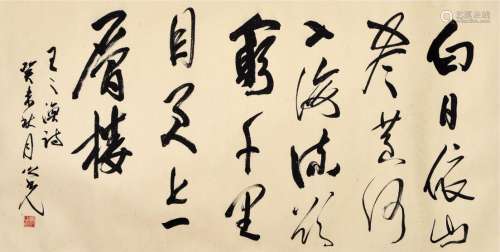 白日依山
尽黄河
入海流欲
窮千里
目更上一
層楼
王之涣诗
癸未秋月